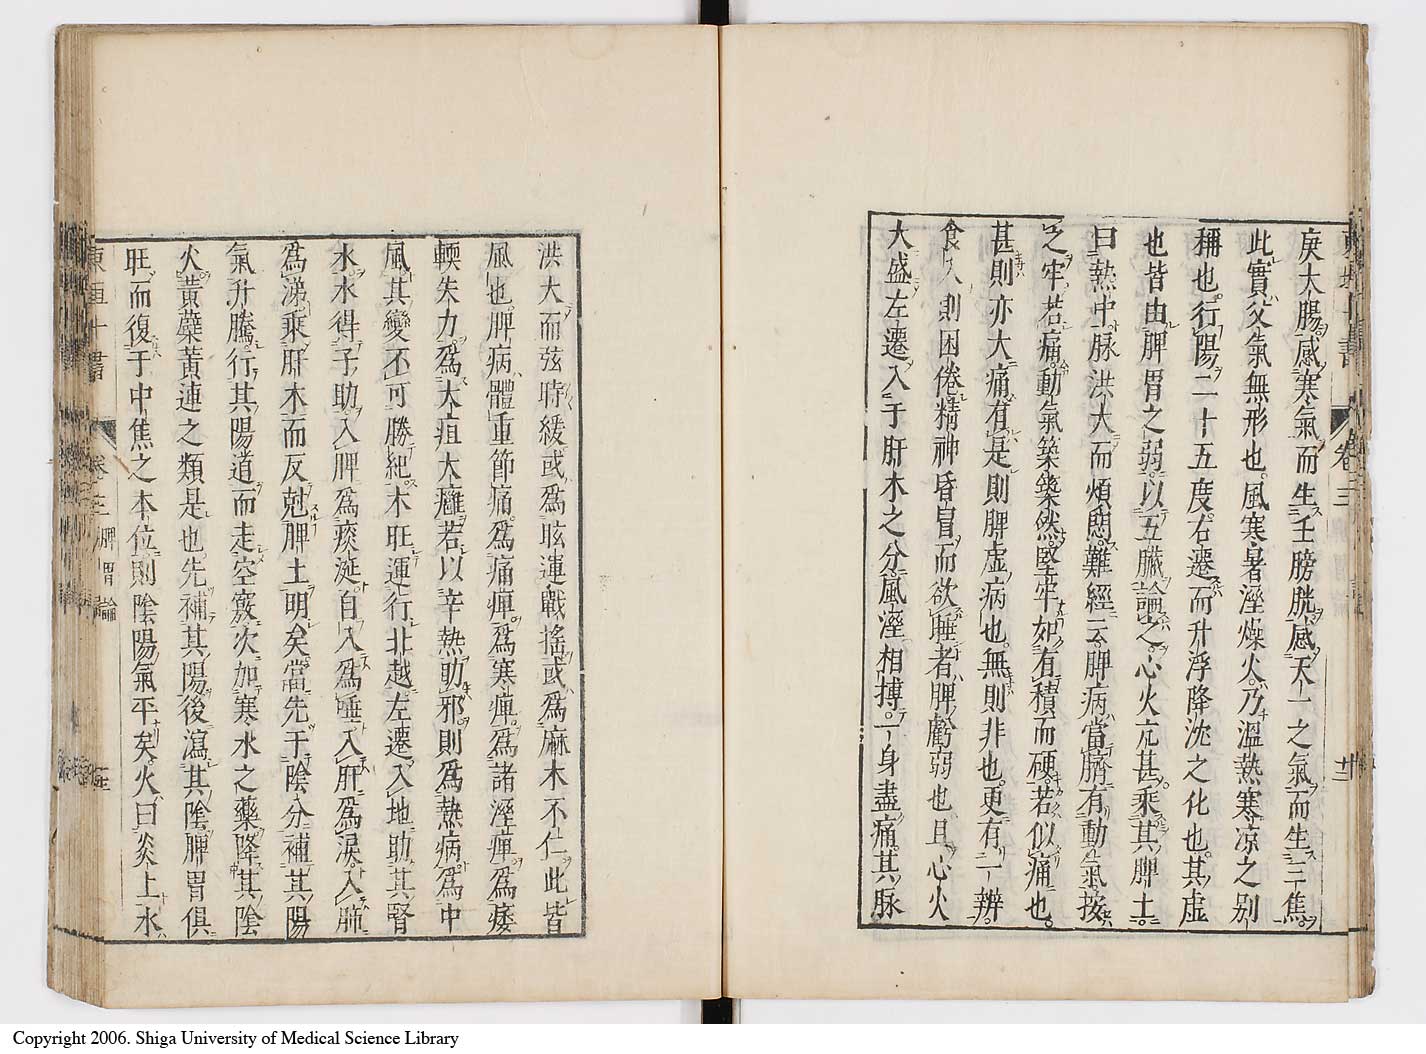 庚大腸感寒氣而生壬膀胱感天一之氣而生三焦
此實父氣無形也風寒暑溼燥火乃溫熱寒凉之別
稱也行陽二十五度右遷而升浮降沈之化也其虛
也皆由脾胃之弱以五臟論之心火亢甚乘其脾土
曰熱中脉洪大而煩悶難經云脾病當臍有動氣按
之牢若痛動氣築築然堅牢如有積而硬若似痛也
甚則亦大痛有是則脾虛病也無則非也更有一辨
食入則困倦精神昏冒而欲睡者脾虧弱也且心火
大盛左遷入于肝木之分風溼相搏一身盡痛其脉
洪大而弦時緩或爲眩運戰搖或爲麻木不仁此皆
風也脾病體重節痛爲痛痺爲寒痺爲諸溼痺爲痿
軟失力爲大疽大癰若以辛熱助邪則爲熱病爲中
風其變不可勝紀木旺運行北越左遷入地助其腎
水水得子助入脾爲痰涎自入爲唾入肝爲淚入肺
爲涕乘肝木而反剋脾土明矣當先于陰分補其陽
氣升騰行其陽道而走空竅次加寒水之藥降其陰
火黃蘗黃連之類是也先補其陽後瀉其陰脾胃俱
旺而復于中焦之本位則陰陽氣平矣火曰炎上水
東垣十書 卷三 脾胃論
Copyright 2006. Shiga University of Medical Science Library